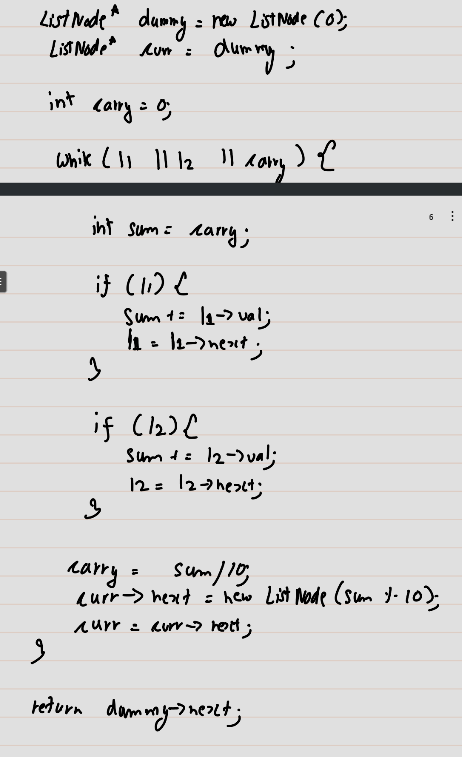 ListNode* dummy = new ListNode(0);
ListNode* curr = dummy;
int carry = 0;
while (l1 || l2 || carry) {
6
int sum = carry;
if (l1) {
sum += l1->val;
l1 = l1->next;
}
if (l2) {
sum += l2->val;
l2 = l2->next;
}
carry = sum/10;
curr->next = new ListNode(sum % 10);
curr = curr->next;
}
return dummy->next;